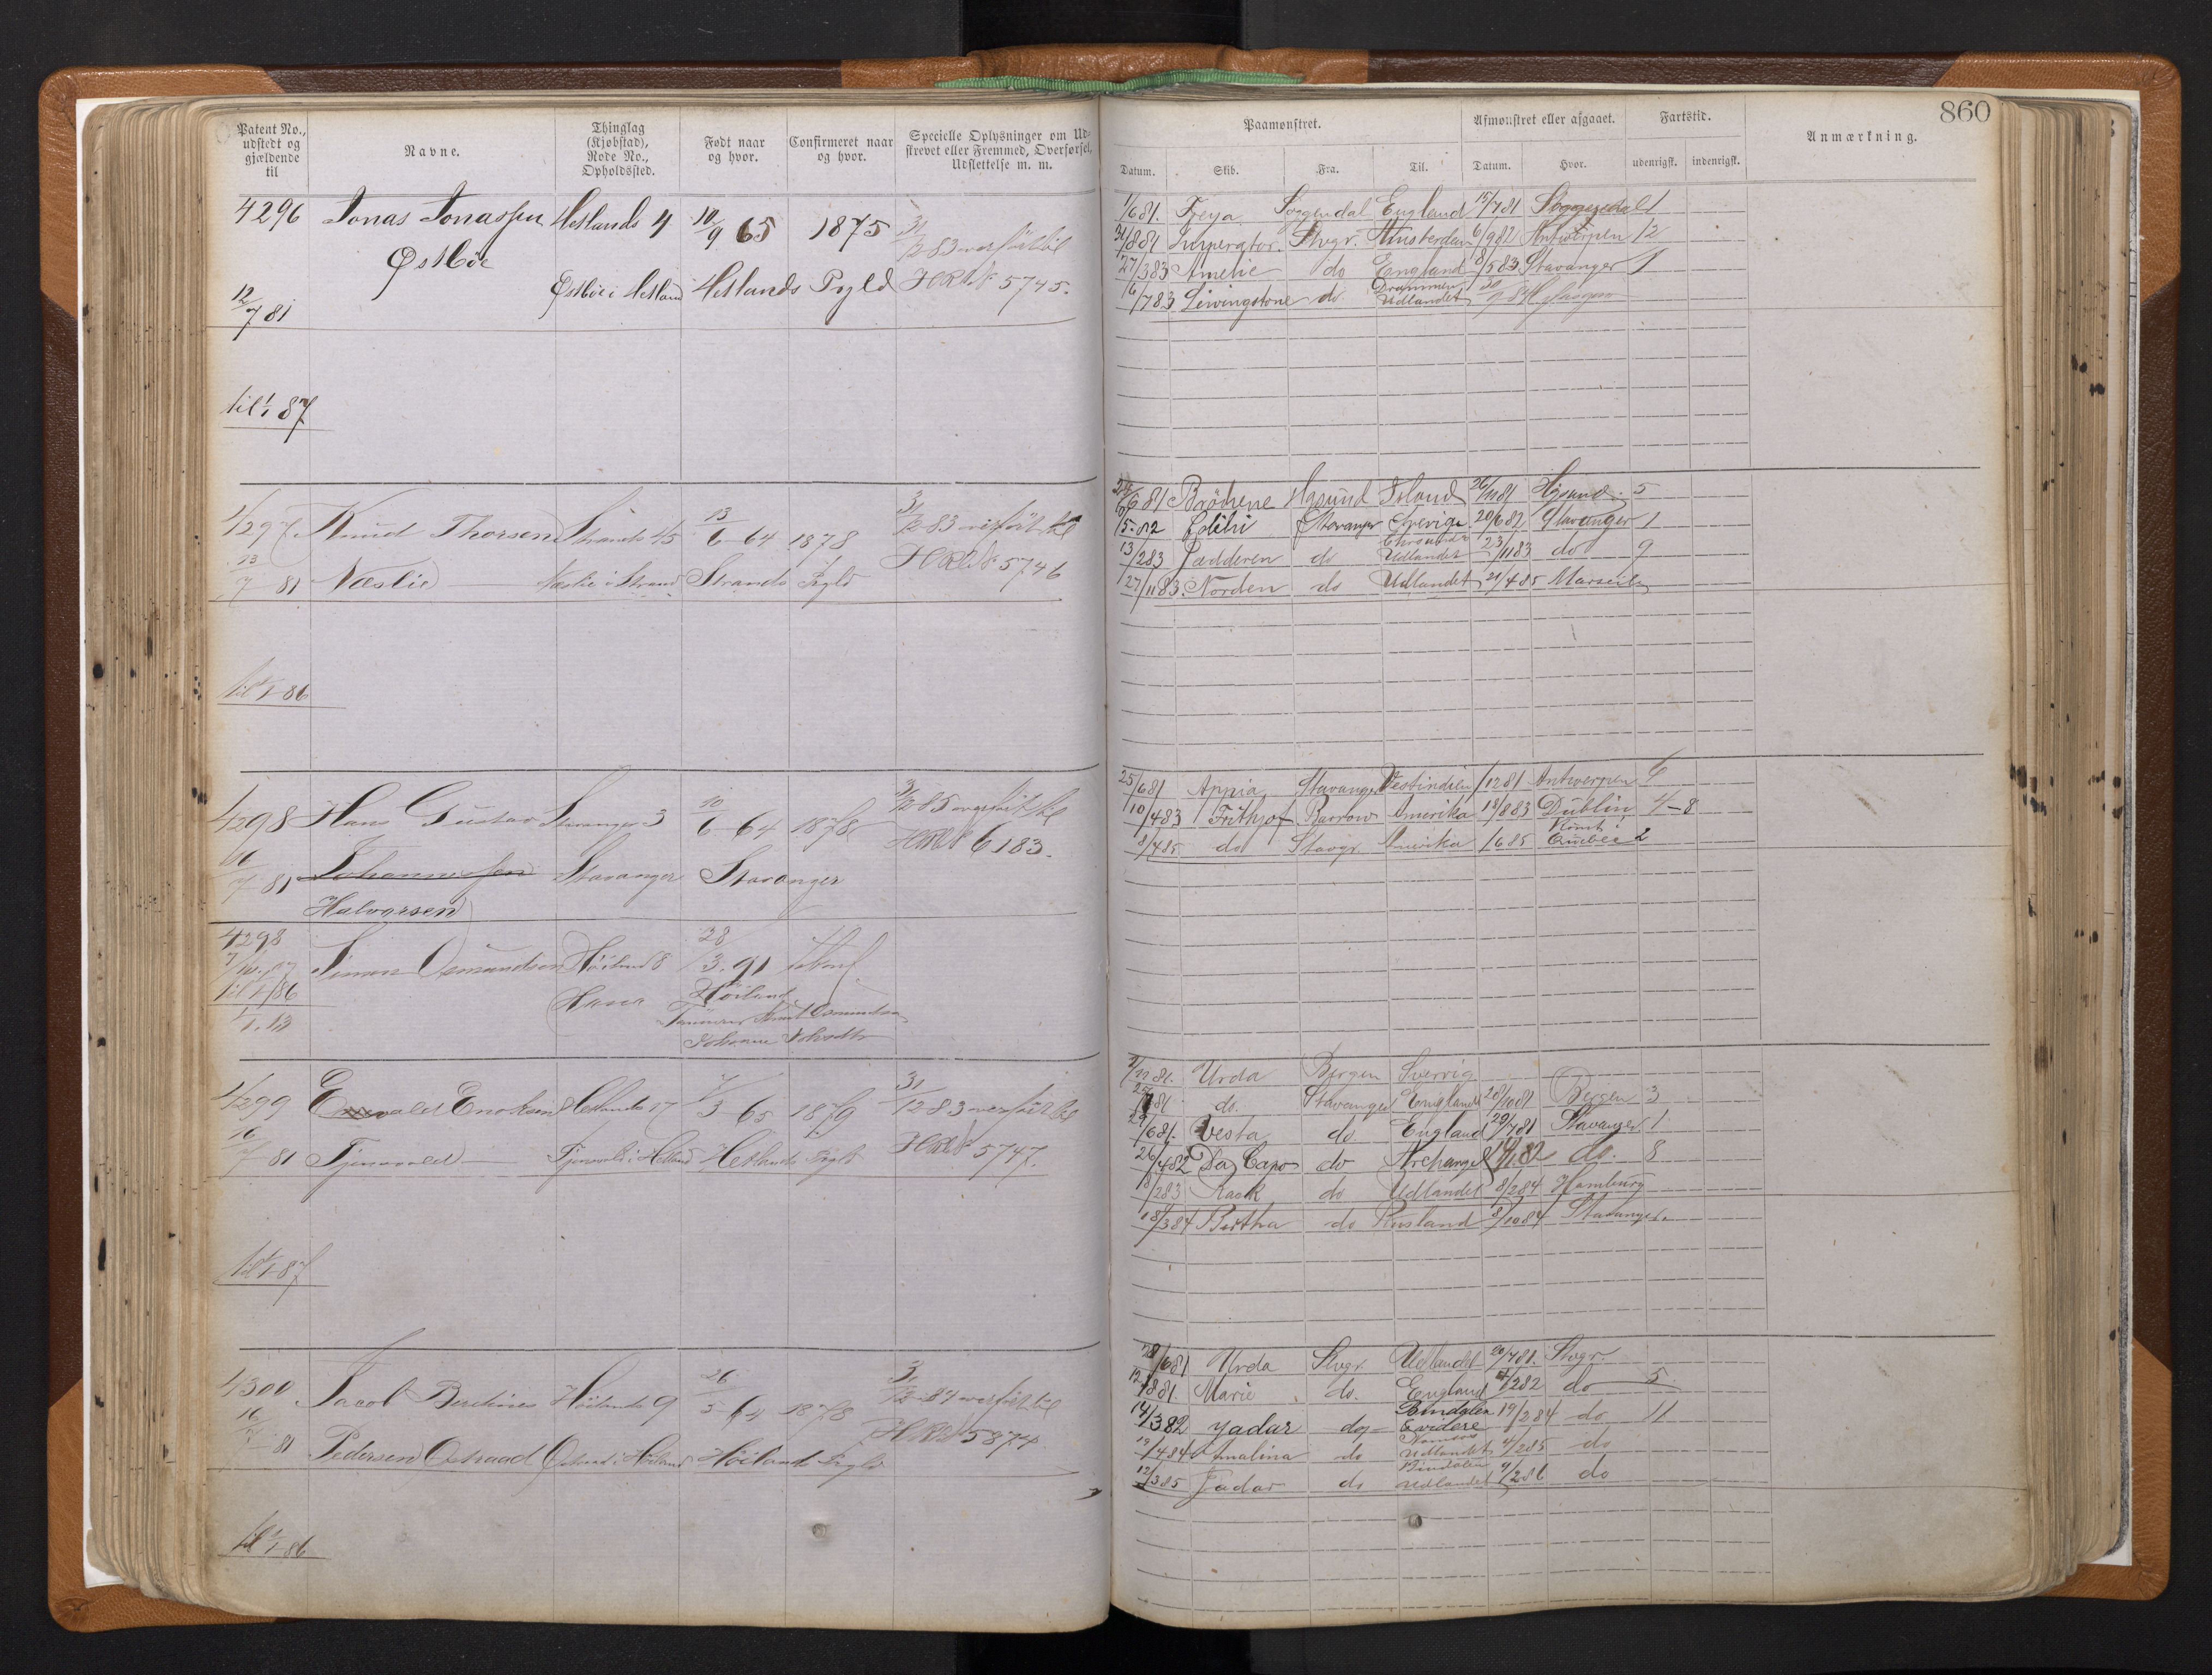 860
Patent No., udstedt og gjældende til
Navne.
Thinglag (Kjøbstad), Rode No., Opholdssted.
Født naar og hvor.
Confirmeret naar og hvor.
Specielle Oplysninger om Udskrevet eller Fremmed, Overførsel, Udslettelse m. m.
Paamønstret.
Afmønstret eller afgaaet.
Fartstid.
Anmærkning.
Datum. Skib. Fra. Til. Datum. Hvor. udenrigsk. indenrigsk.
4296 Jonas Jonassen Hetlands 4 10/9 65 1875 31/12 83 overført til
Østbøe
Østbøe i Hetland Hetlands Pgld HRL No 5745.
12/7 81
til 1/1 87
1/6 81. Freya Soggendal England 15/7 81 Soggendal 1
31/8 81 Imperator. Stvgr. Amsterdam 6/9 82 Antwerpen 12
27/3 83 Amelie do England 8/5 83 Stavanger 1
6/7 83 Livingstone do Drammen Udlandet
4297 Knud Thorsen Strands 45 13/6 64 1878 31/12 83 overført til
23/7 81 Næslie Næslie i Strand Strands Pgld HRL No 5746
til 1/1 86
24/6 81 Hgsund Island Hgsund. 5
Stavanger Sverige 20/6 82 Stavanger 1
13/2 83 Jædderen do Udlandet 23/11 83 do 9
27/11 83. Norden do Udlandet 21/4 85 Marseille
4298 Hans Gustav Stavanger 3 10/6 64 1878 31/12 85 overført til
HRL No 6183.
16/7 81 Johannessen Stavanger Stavanger
Halvorsen
25/6 81 Appia Stavanger Vestindien /12 81 Antwerpen 6
10/4 83 Frithjof Barrow Amerika 18/8 83 Dublin 4-8
8/4 85 do Stavgr. Amerika /6 85 Rømt i Quebec 2
4298
Simon Osmundsen Høiland 8 28/3. 91
til 1/1 86
Høiland
1/1. 13
4299 Enevald Enoksen Hetlands 17 7/3 65 1879 31/12 83 overført til
16/7 81 Tjensvold Tjensvold i Hetland Hetlands Pgld HRL No 5747.
til 1/1 87
Urda Bergen Sverrig
do. Stavanger England 28/10 81 Bergen 3
/6 81. Vesta do. England 29/7 81 Stavanger 1
26/4 82 Da Capo do Archangel do. 8
18/2 83 Raak do Udlandet 8/2 84 Hamburg
18/3 84 Bertha do Rusland 8/10 84 Stavanger.
4300 Jacob Berdines Høilands 9 26/5 64 1878 31/12 84 overført til
HRL No 5874
16/7 81 Pedersen Østraad Østraad i Høiland Høilands Pgld
til 1/1 86
28/6 81 Urda Stvgr. Udlandet 20/7 81. Stvgr.
12/8 81. Marie do. England /2 82 do 5
14/3 82 Jadar do Bindalen & videre 19/2 84 do 11
19/4 84 Amalina do Namsos Udlandet 4/2 85 do
12/3 85 Jadar do Bindalen Udlandet 4/2 86 do